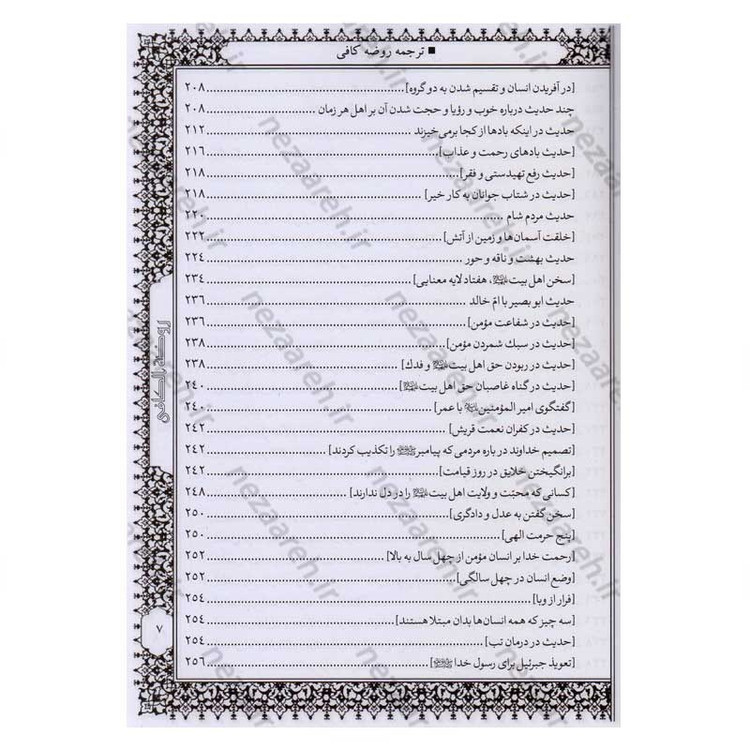 ■ ترجمه روضه کافی
[در آفریدن انسان و تقسیم شدن به دو گروه] ۲۰۸
چند حدیث درباره خوب و رؤیا و حجت شدن آن بر اهل هر زمان ۲۰۸
حدیث در اینکه بادها از کجا برمی خیزند ۲۱۲
[حدیث بادهای رحمت و عذاب] ۲۱۶
[حدیث رفع تهیدستی و فقر] ۲۱۸
[حدیث در شتاب جوانان به کار خیر] ۲۱۸
حدیث مردم شام ۲۲۰
[خلقت آسمان‌ها و زمین از آتش] ۲۲۲
حدیث بهشت و ناقه و حور ۲۲٤
[سخن اهل بیت، هفتاد لایه معنایی] ۲۳٤
حدیث ابو بصیر با امّ خالد ۲۳۶
[حدیث در شفاعت مؤمن] ۲۳۶
[حدیث در سبک شمردن مؤمن] ۲۳۸
[حدیث در ربودن حق اهل بیت و فدك] ۲۳۸
[حدیث در گناه غاصبان حق اهل بیت] ۲٤۰
[گفتگوی امیر المؤمنین با عمر] ۲٤۰
[حدیث در کفران نعمت قریش] ۲٤۲
[تصمیم خداوند درباره مردمی که پیامبر را تکذیب کردند] ۲٤۲
[برانگیختن خلایق در روز قیامت] ۲٤۲
[کسانی که محبّت و ولایت اهل بیت را در دل ندارند] ۲٤۸
[سخن گفتن به عدل و دادگری] ۲۵۰
[پنج حرمت الهی] ۲۵۰
[رحمت خدا بر انسان مؤمن از چهل سال به بالا] ۲۵۲
[وضع انسان در چهل سالگی] ۲۵۲
[فرار از وبا] ۲۵٤
[سه چیز که همه انسان‌ها بدان مبتلا هستند] ۲۵٤
[حدیث در درمان تب] ۲۵٤
[تعویذ جبرئیل برای رسول خدا] ۲۵۶
روضة الكافي
۷
nezaareh.ir